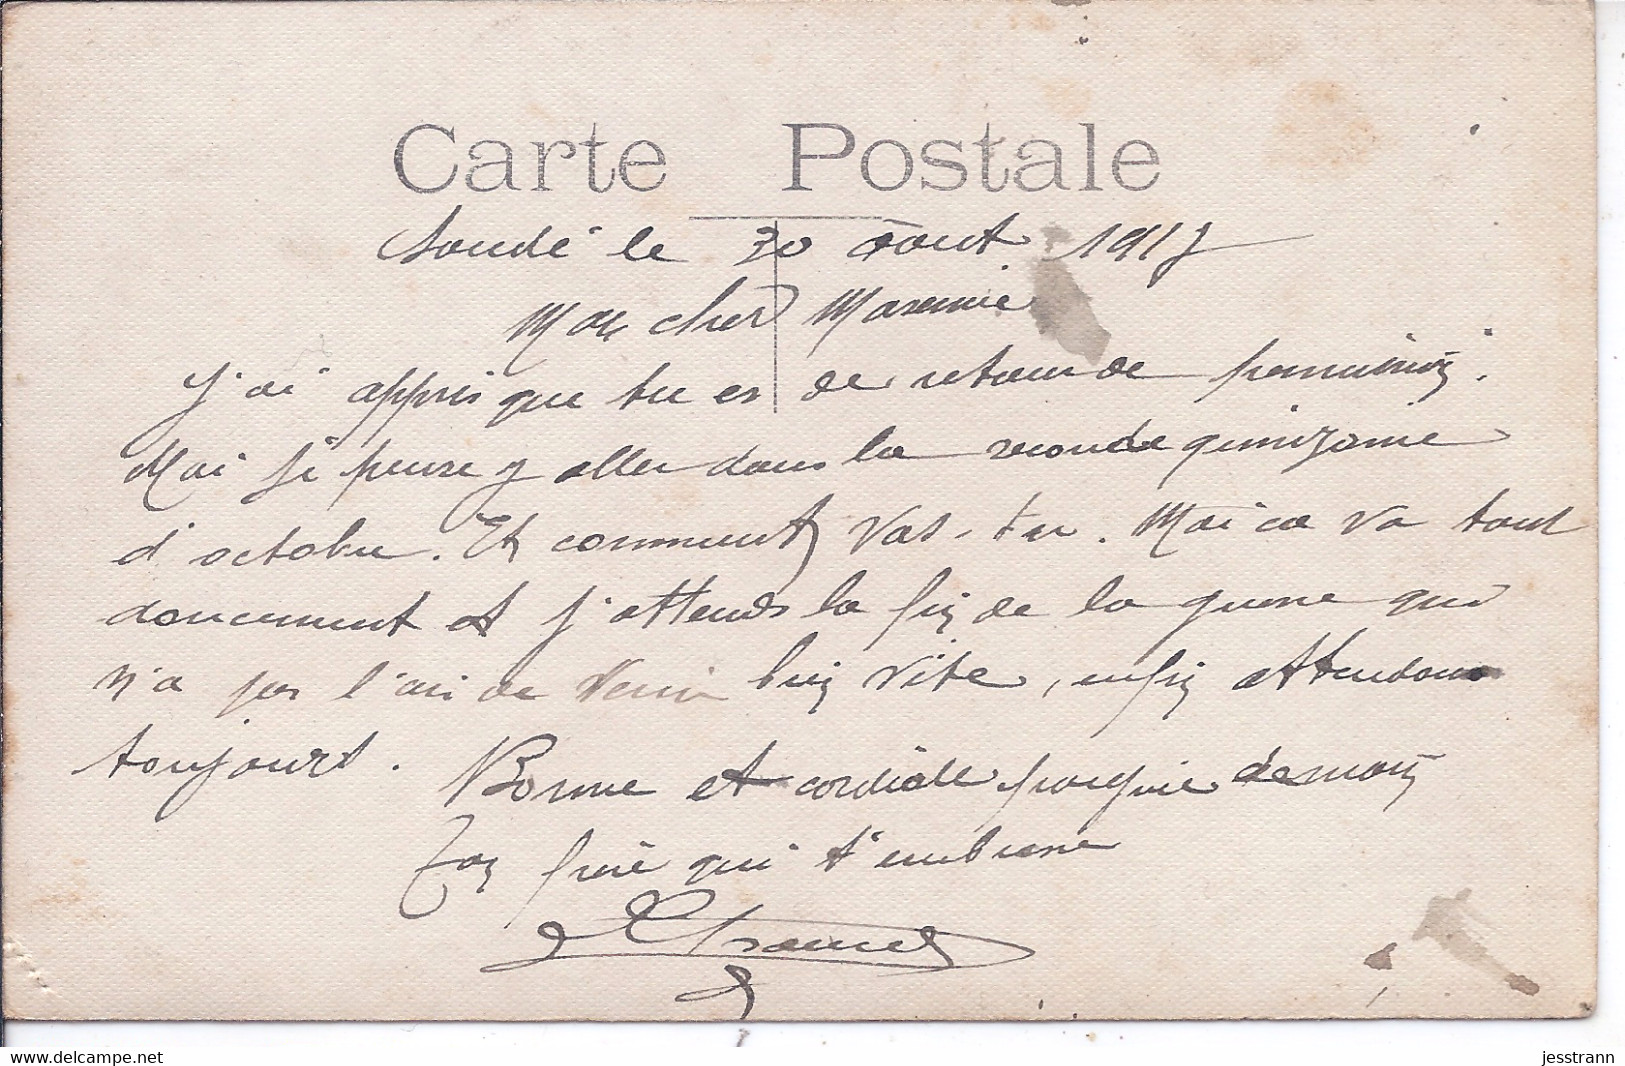 Carte Postale
Soudé le 30 Août 1917
Mon cher Maxime
J'ai appris que tu es de retour de permission.
Moi je pense y aller dans la seconde quinzaine
d'octobre. Et comment vas-tu. Moi ca va tout
doucement et j'attends la fin de la guerre qui
n'a pas l'air de venir bien vite, enfin attendons
toujours.
Bonne et cordiale poignée de main
Ton frère qui t'embrasse
www.delcampe.net
jesstrann